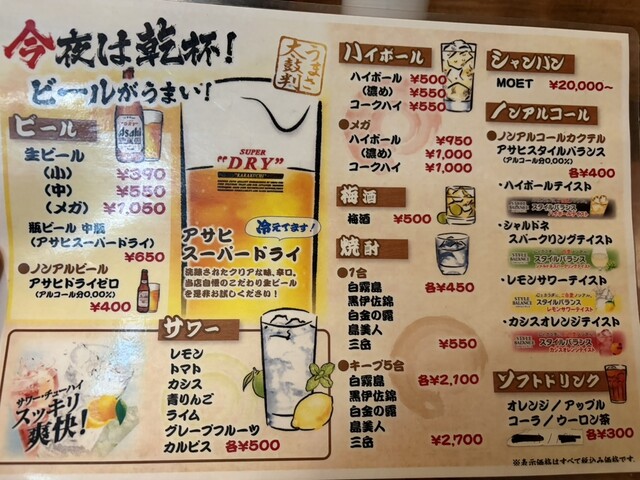 今夜は乾杯!
ビールがうまい!
うまさ
太鼓判
ビール
生ビール
(小) ¥390
(中) ¥550
(メガ) ¥1,050
瓶ビール 中瓶
(アサヒスーパードライ)
¥650
●ノンアルビール
アサヒドライゼロ
(アルコール分0.00%)
¥400
Asahi
SUPER
"DRY"
"KARAKUCHI"
冷えてます!
アサヒ
スーパードライ
洗練されたクリアな味、辛口。
当店自慢のこだわり生ビール
を是非お試しください!
サワー
レモン
トマト
カシス
青りんご
ライム
グレープフルーツ
カルピス 各¥500
サワー・チューハイ
スッキリ
爽快!
ハイボール
ハイボール ¥500
(濃め) ¥550
コークハイ ¥550
●メガ
ハイボール ¥950
(濃め) ¥1,000
コークハイ ¥1,000
梅酒
梅酒 ¥500
焼酎
●1合
白霧島 各¥450
黒伊佐錦
白金の露
島美人
三岳 ¥550
●キープ5合
白霧島 各¥2,100
黒伊佐錦
白金の露
島美人
三岳 ¥2,700
シャンパン
MOET ¥20,000~
ノンアルコール
●ノンアルコールカクテル
アサヒスタイルバランス
(アルコール分0.00%)
各¥400
・ハイボールテイスト
STYLE BALANCE
スタイルバランス
ハイボールテイスト
・シャルドネ
スパークリングテイスト
STYLE BALANCE
スタイルバランス
・レモンサワーテイスト
STYLE BALANCE
スタイルバランス
レモンサワーテイスト
・カシスオレンジテイスト
STYLE BALANCE
スタイルバランス
カシスオレンジテイスト
ソフトドリンク
オレンジ/アップル
コーラ/ウーロン茶
各¥300
※表示価格はすべて税込み価格です。